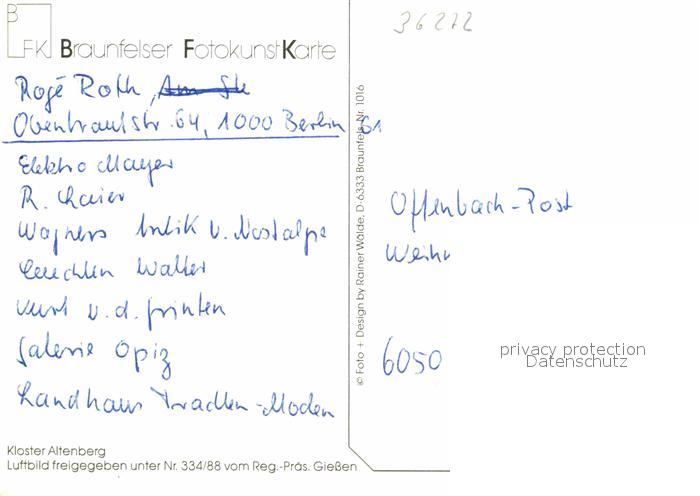 36272
B
FK Braunfelser FotokunstKarte
Rogé Roth,
Obentrautstr. 64, 1000 Berlin 61
Elektro Mayer
R.
Wagners Antik u. Nostalgie
Leuchten Walter
Kunst v. d. Grinten
Galerie Opiz
Landhaus Trachten-Moden
Offenbach-Post
6050
privacy protection
Datenschutz
© Foto + Design by Rainer Wälde, D-6333 Braunfels Nr. 1016
Kloster Altenberg
Luftbild freigegeben unter Nr. 334/88 vom Reg.-Präs. Gießen